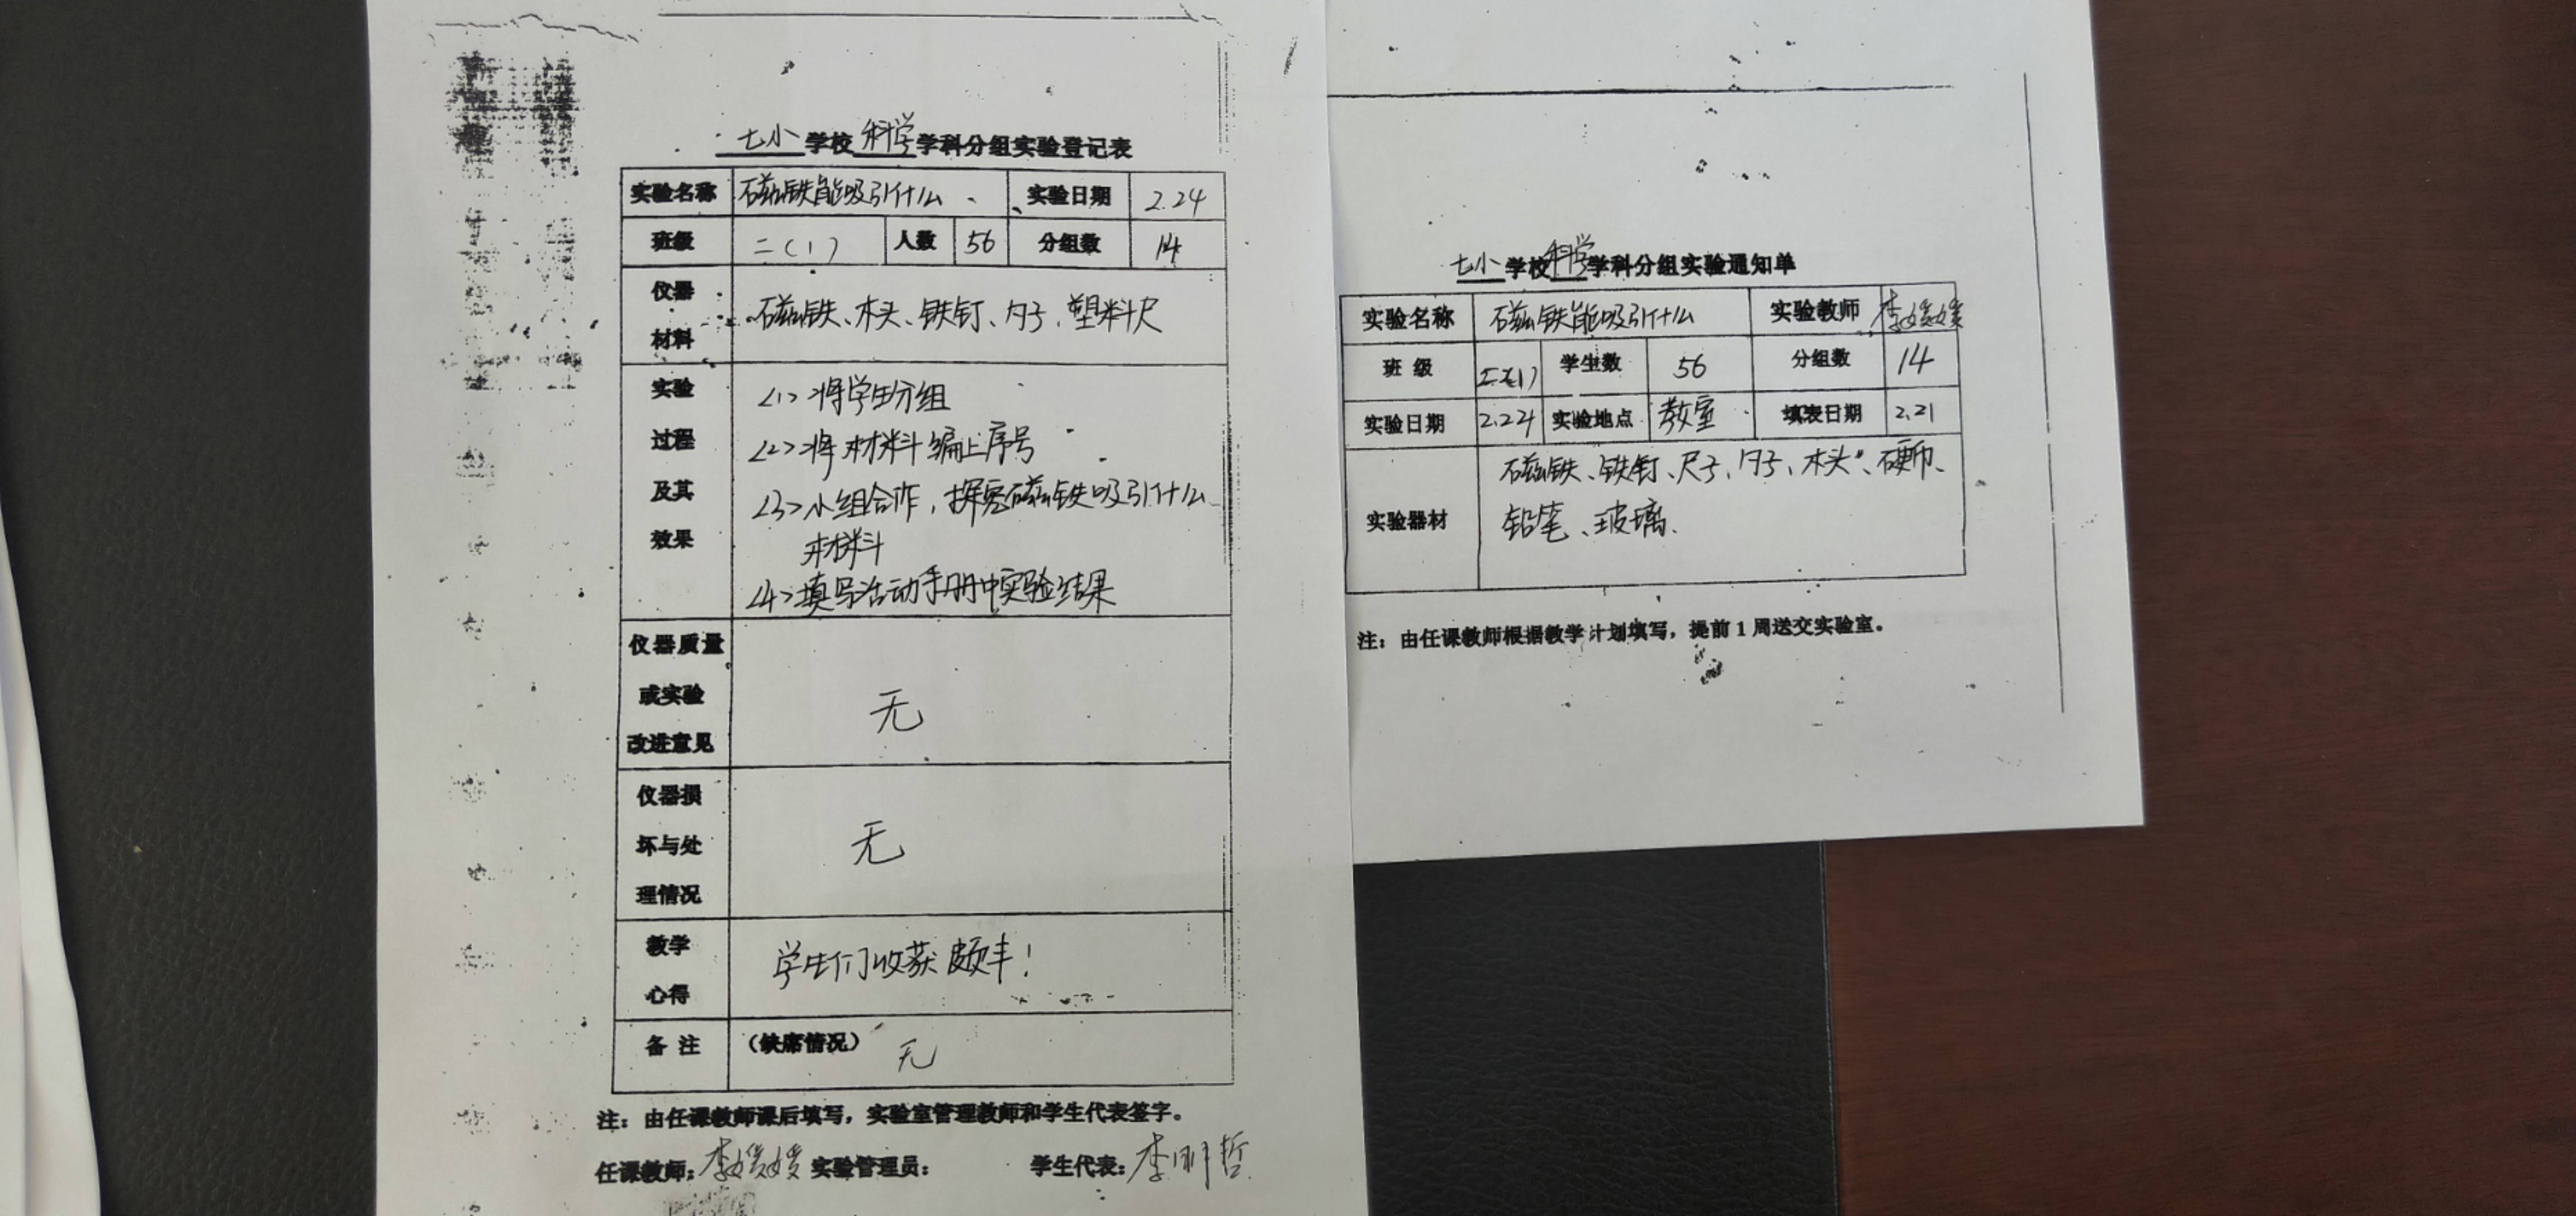 七小学校科学学科分组实验登记表
实验名称 磁铁能吸引什么 实验日期 2.24
班级 二（1） 人数 56 分组数 14
仪器材料 磁铁、木头、铁钉、勺子、塑料尺
实验过程及其效果 <1>将学生分组
<2>将材料编上序号
<3>小组合作，探究磁铁吸引什么
材料
<4>填写活动手册中实验结果
仪器质量或实验改进意见 无
仪器损坏与处理情况 无
教学心得 学生们收获颇丰！
备注 （缺席情况） 无
注：由任课教师课后填写，实验室管理教师和学生代表签字。
任课教师：李媛媛 实验管理员： 学生代表：李明哲
七小学校科学学科分组实验通知单
实验名称 磁铁能吸引什么 实验教师 李媛媛
班级 二（1） 学生数 56 分组数 14
实验日期 2.24 实验地点 教室 填表日期 2.21
实验器材 磁铁、铁钉、尺子、勺子、木头、硬币、
铅笔、玻璃.
注：由任课教师根据教学计划填写，提前1周送交实验室。